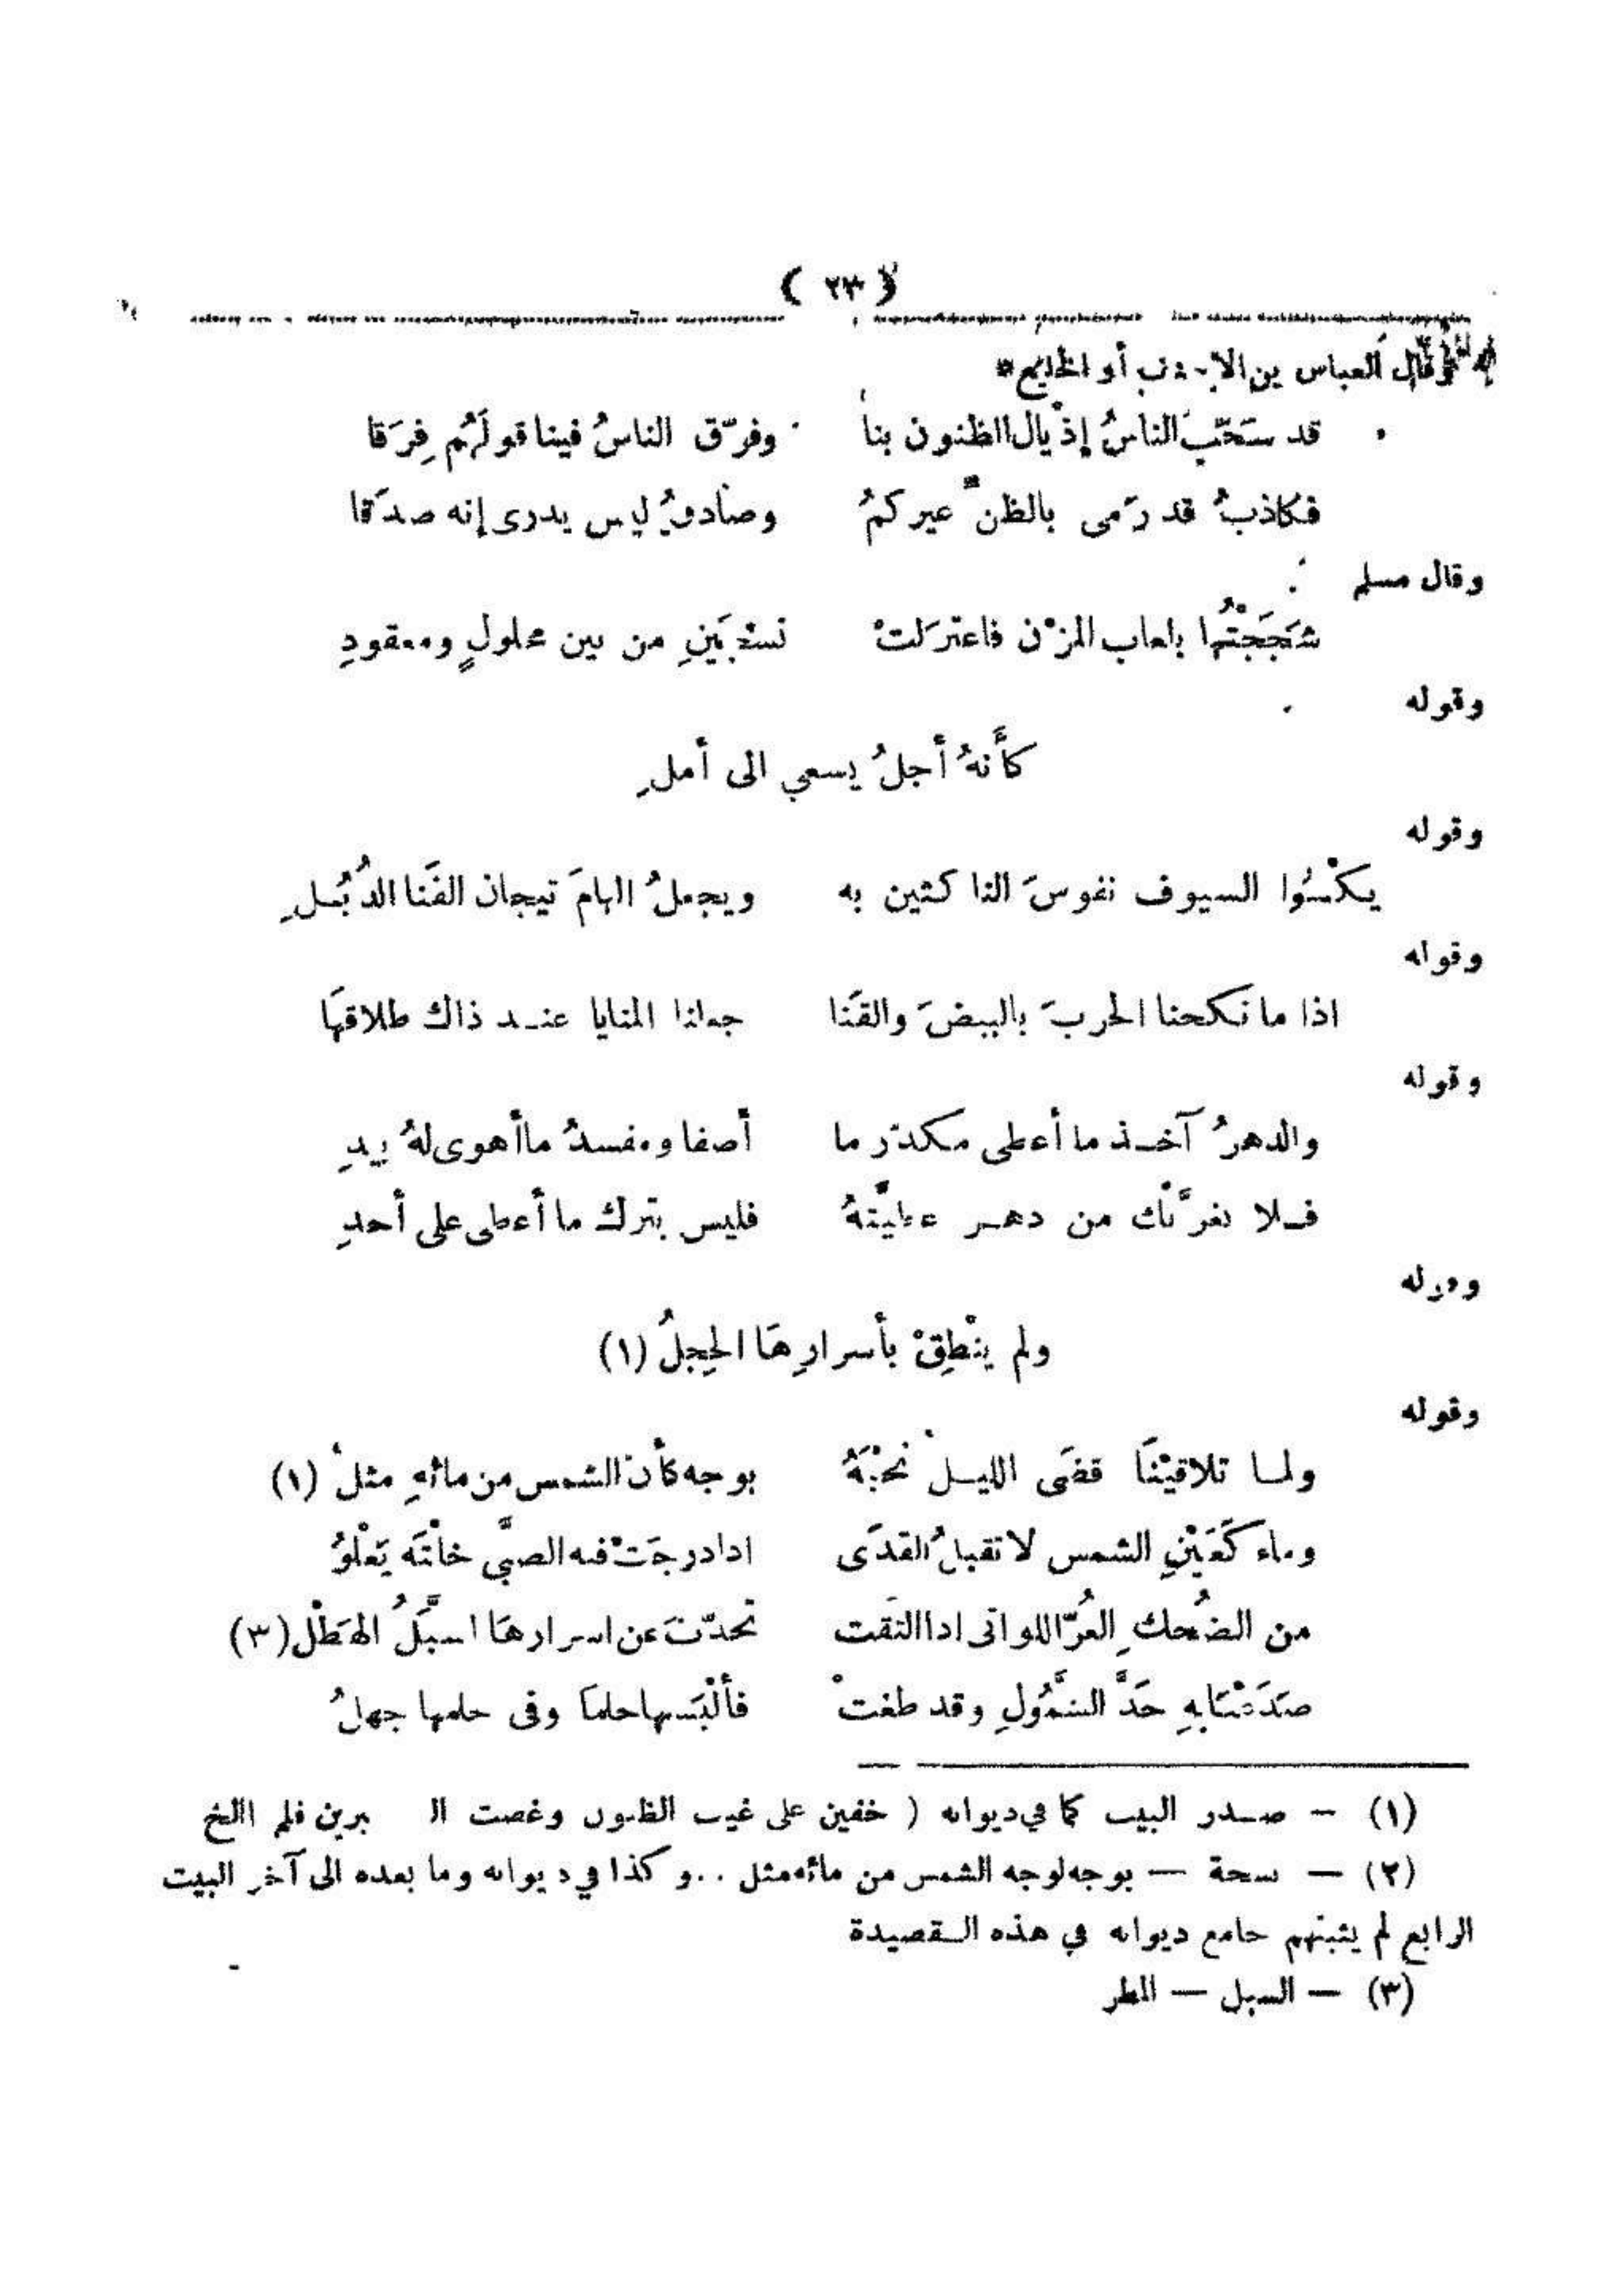 ( ٢٣ )
وقال العباس بن الأحنف أو الخليع*
قد سَحَّبَ الناسُ إذْيال الظنون بنا وفرّق الناسُ فينا قولَهُم فِرَقا
فكاذبُ قد رَمى بالظنّ غيركمُ وصادقٌ ليس يدرى إنه صدَقا
وقال مسلم
شَجَجْتُها بلعاب المزْن فاعترَلتْ نسْجَينِ من بين محلولٍ ومعقودِ
وقوله
كأَنهُ أجلُ يسعي الى أملِ
وقوله
يكْسُوا السيوف نفوسَ الناكثين به ويجعلُ الهامَ تيجان القَنا الذُبُلِ
وقوله
اذا ما نكحنا الحربَ بالبيضَ والقَنا جعلنا المنايا عند ذاك طلاقهَا
وقوله
والدهرُ آخذ ما أعطى مكدّر ما أصفا ومفسدُ ما أهوى لهُ بيدِ
فلا تغرَّنْك من دهر عطيَّتهُ فليس يترك ما أعطى على أحدِ
وقوله
ولم ينْطِقْ بأسرارِهَا الحِجلُ (١)
وقوله
ولما تلاقيْنَا قضَى الليلُ نَحْبَهُ بوجه كأن الشمس من مائهِ مثلُ (١)
وماء كَعَيْنِ الشمس لا تقبلُ القدَى اذا درجَتْ فيه الصبَّى خلْتَه يَعْلوُ
من الضُحك الغُرّ اللواتى اذا التقت تحدّثَ عن اسرارهَا السَّبَلُ الهَطْل (٣)
صَدَعْنَا بهِ حَدَّ الشَّمُولِ وقد طغتْ فألْبَسها حلماَ وفى حلمها جهلُ
(١) — صدر البيت كما في ديوانه ( خفين على غيب الظنون وغصت ال برين فلم الخ
(٢) — نسخة — بوجه لوجه الشمس من مائه مثل .. وكذا في ديوانه وما بعده الى آخر البيت
الرابع لم يثبتهم جامع ديوانه في هذه القصيدة
(٣) — السبل — المطر